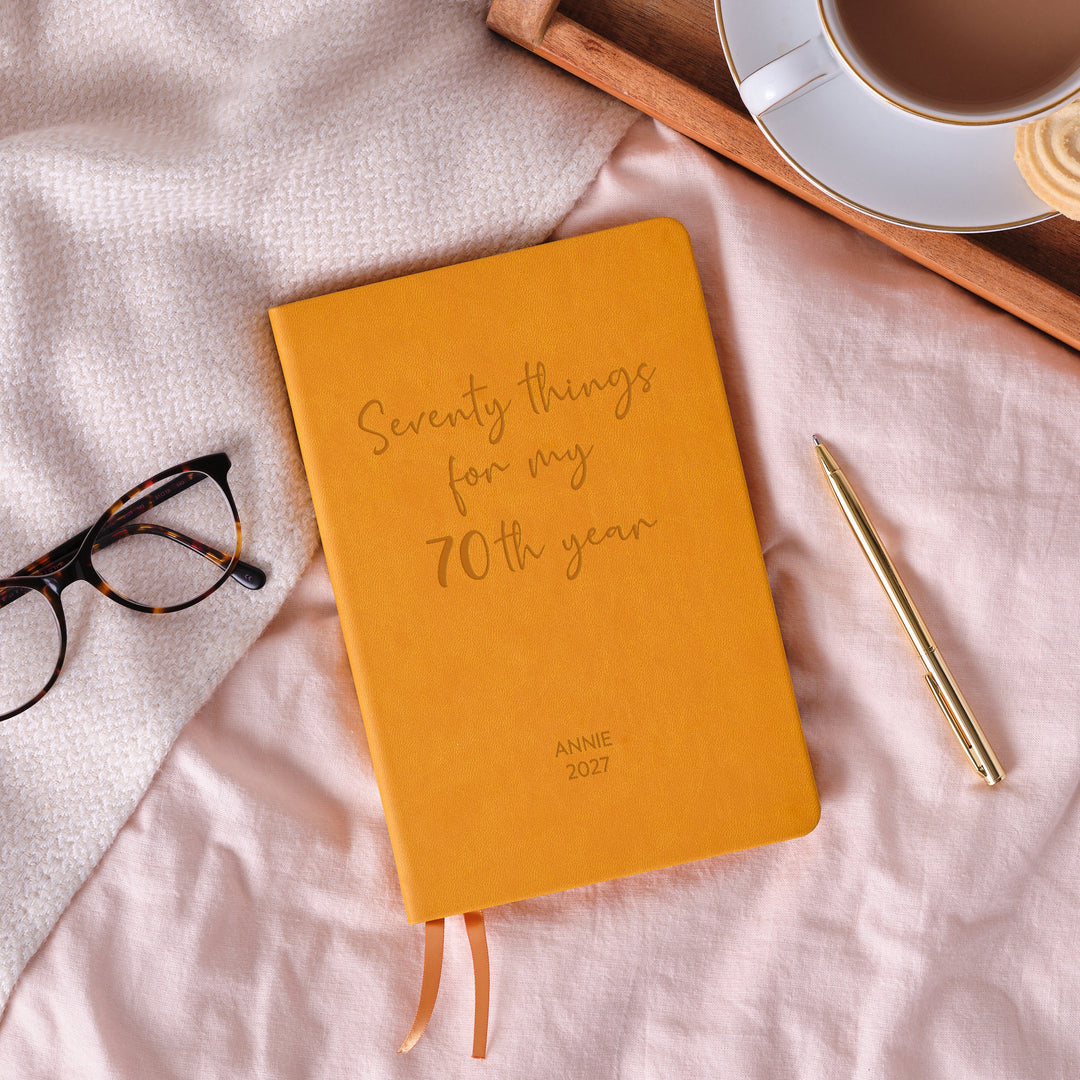 Seventy things
for my
70th year
ANNIE
2027